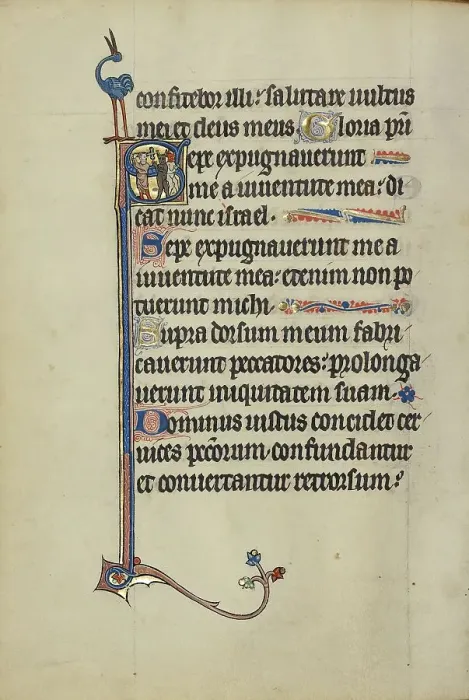 confitebor illi: salutare uultus
mei et deus meus. Gloria pri
Sepe expugnauerunt
me a iuuentute mea: di
cat nunc israel.
Sepe expugnauerunt me a
iuuentute mea: etenim non po
tuerunt michi.
Supra dorsum meum fabri
cauerunt peccatores: prolonga
uerunt iniquitatem suam.
Dominus iustus concidet cer
uices peccorum. confundantur
et conuertantur retrorsum: